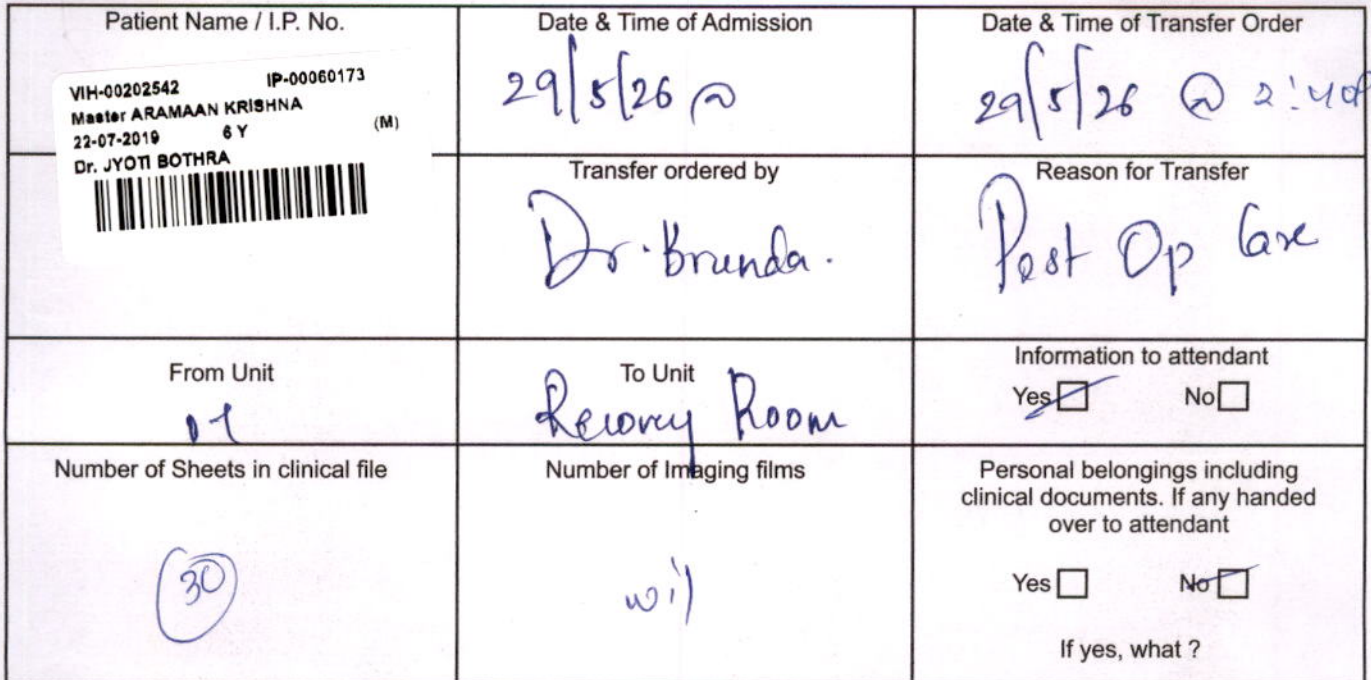 Patient Name / I.P. No.
VIH-00202542 IP-00060173
Master ARAMAAN KRISHNA
22-07-2019 6 Y (M)
Dr. JYOTI BOTHRA
Date & Time of Admission
29/5/26 @
Date & Time of Transfer Order
29/5/26 @ 2:40
Transfer ordered by
Dr. Brunda.
Reason for Transfer
Post Op Care
From Unit
To Unit
Recovery Room
Information to attendant
Yes No
Number of Sheets in clinical file
30
Number of Imaging films
Personal belongings including
clinical documents. If any handed
over to attendant
Yes No
If yes, what ?